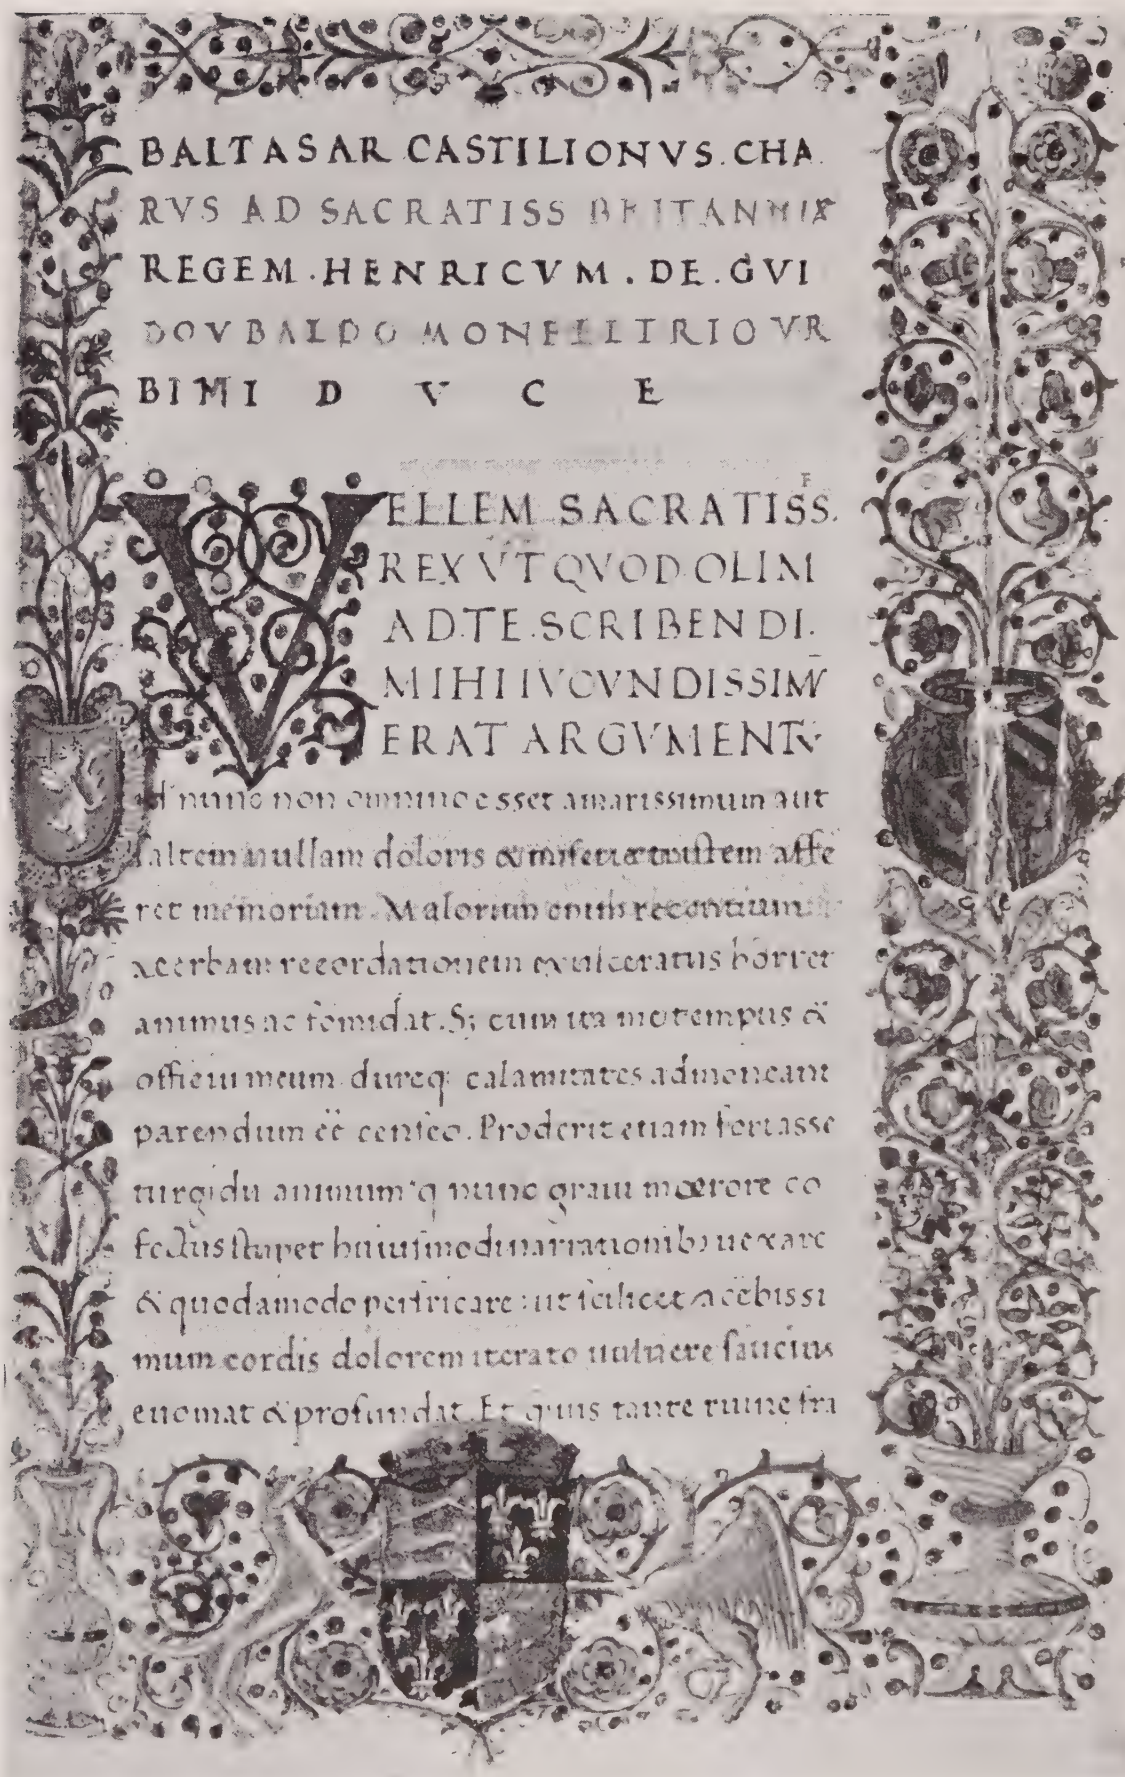 BALTASAR CASTILIONVS. CHA
RVS AD SACRATISS BRITANNIÆ
REGEM. HENRICVM. DE. GVI
DOVBALDO MONFELLTRIO VR
BIMI D V C E
VELLEM SACRATISS.
REX VT QVOD OLIM
AD. TE. SCRIBENDI.
MIHI IVCVNDISSIMV̄
ERAT ARGVMENTV̄
id nunc non omnino esset amarissimum aut
saltem nullam doloris & miseriæ tristem affe
ret memoriam. Malorum enim recentium
acerbam recordationem exulceratus horret
animus ac formidat. Sꝫ cum ita me tempus &
officiū meum dureq; calamitates admoneant
parendum eē censeo. Proderit etiam fortasse
turgidū animum q nunc graui mœrore cō
fectus stupet huiusmodi narrationibꝫ uexare
& quodamodo perfricare: ut scilicet acebissi
mum cordis dolorem iterato uulnere saucius
euomat & profundat. Et quis tante ruine fra